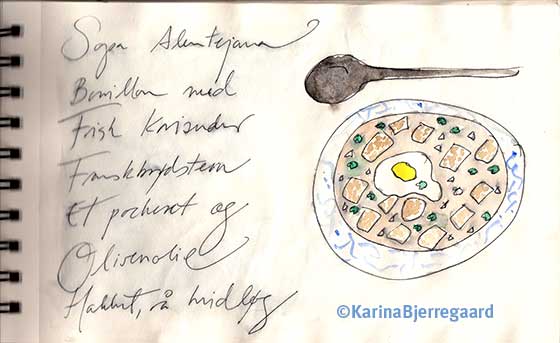 Sopa Alentejana
Bouillon med
Frisk Koriander
Franskbrødstern
Et pocheret æg
Olivenolie
Hakket, rå hvidløg
©KarinaBjerregaard